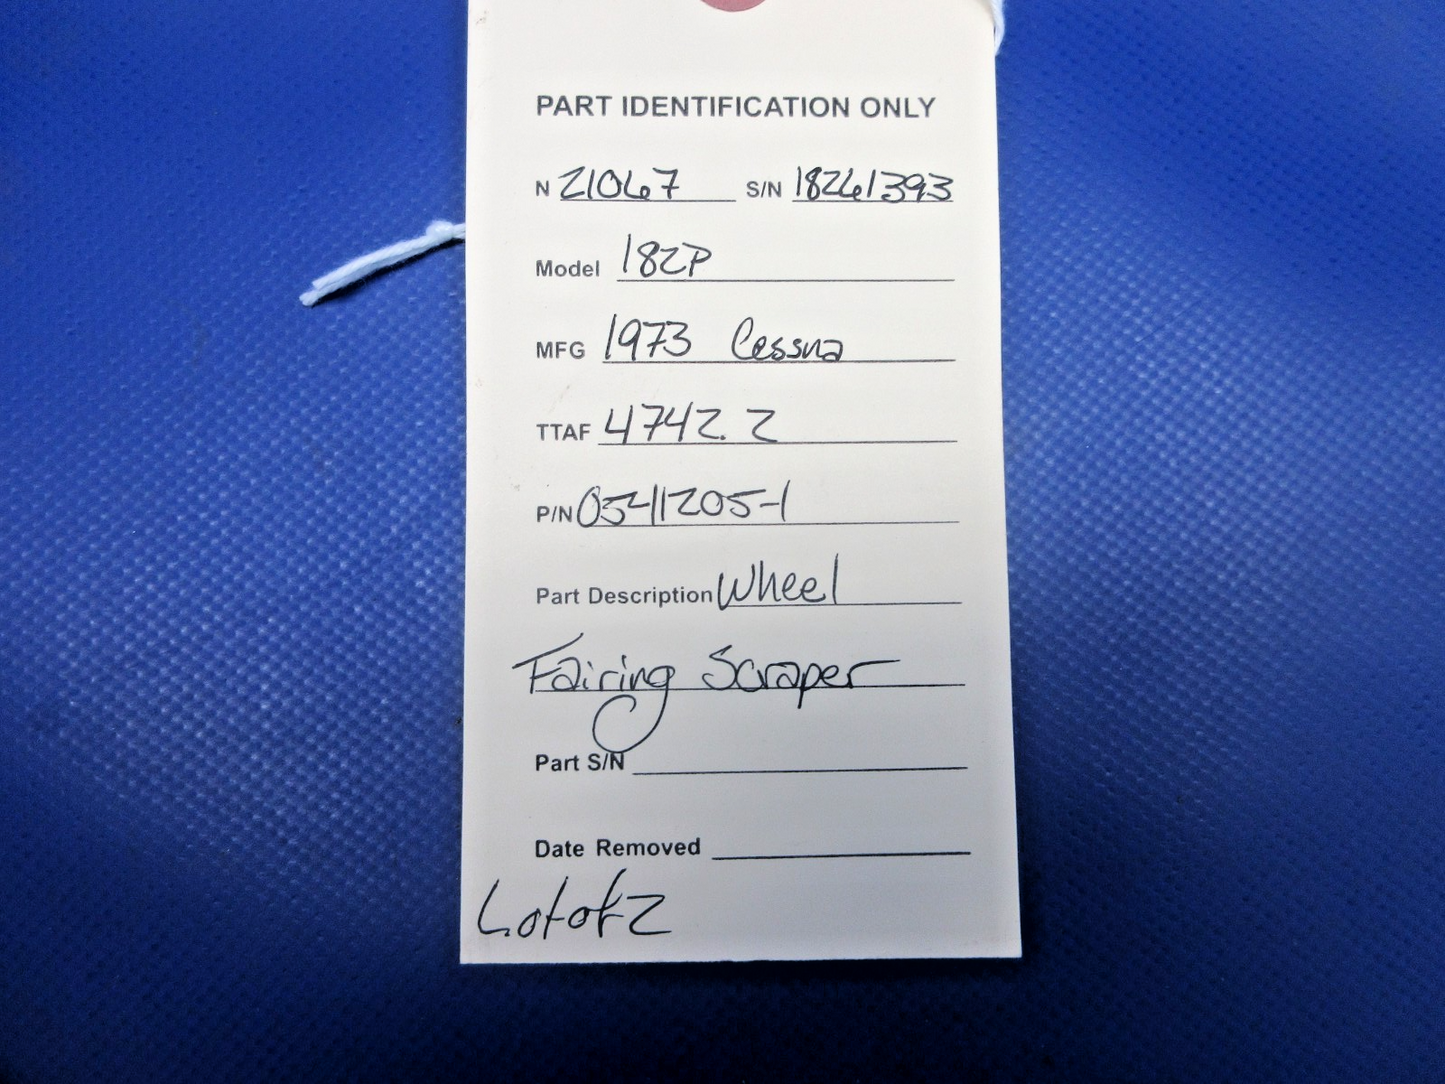 PART IDENTIFICATION ONLY
N 21067 S/N 18261393
Model 182P
MFG 1973 Cessna
TTAF 4742.2
P/N 05-11205-1
Part Description Wheel
Fairing Scraper
Part S/N
Date Removed
Lot of 2